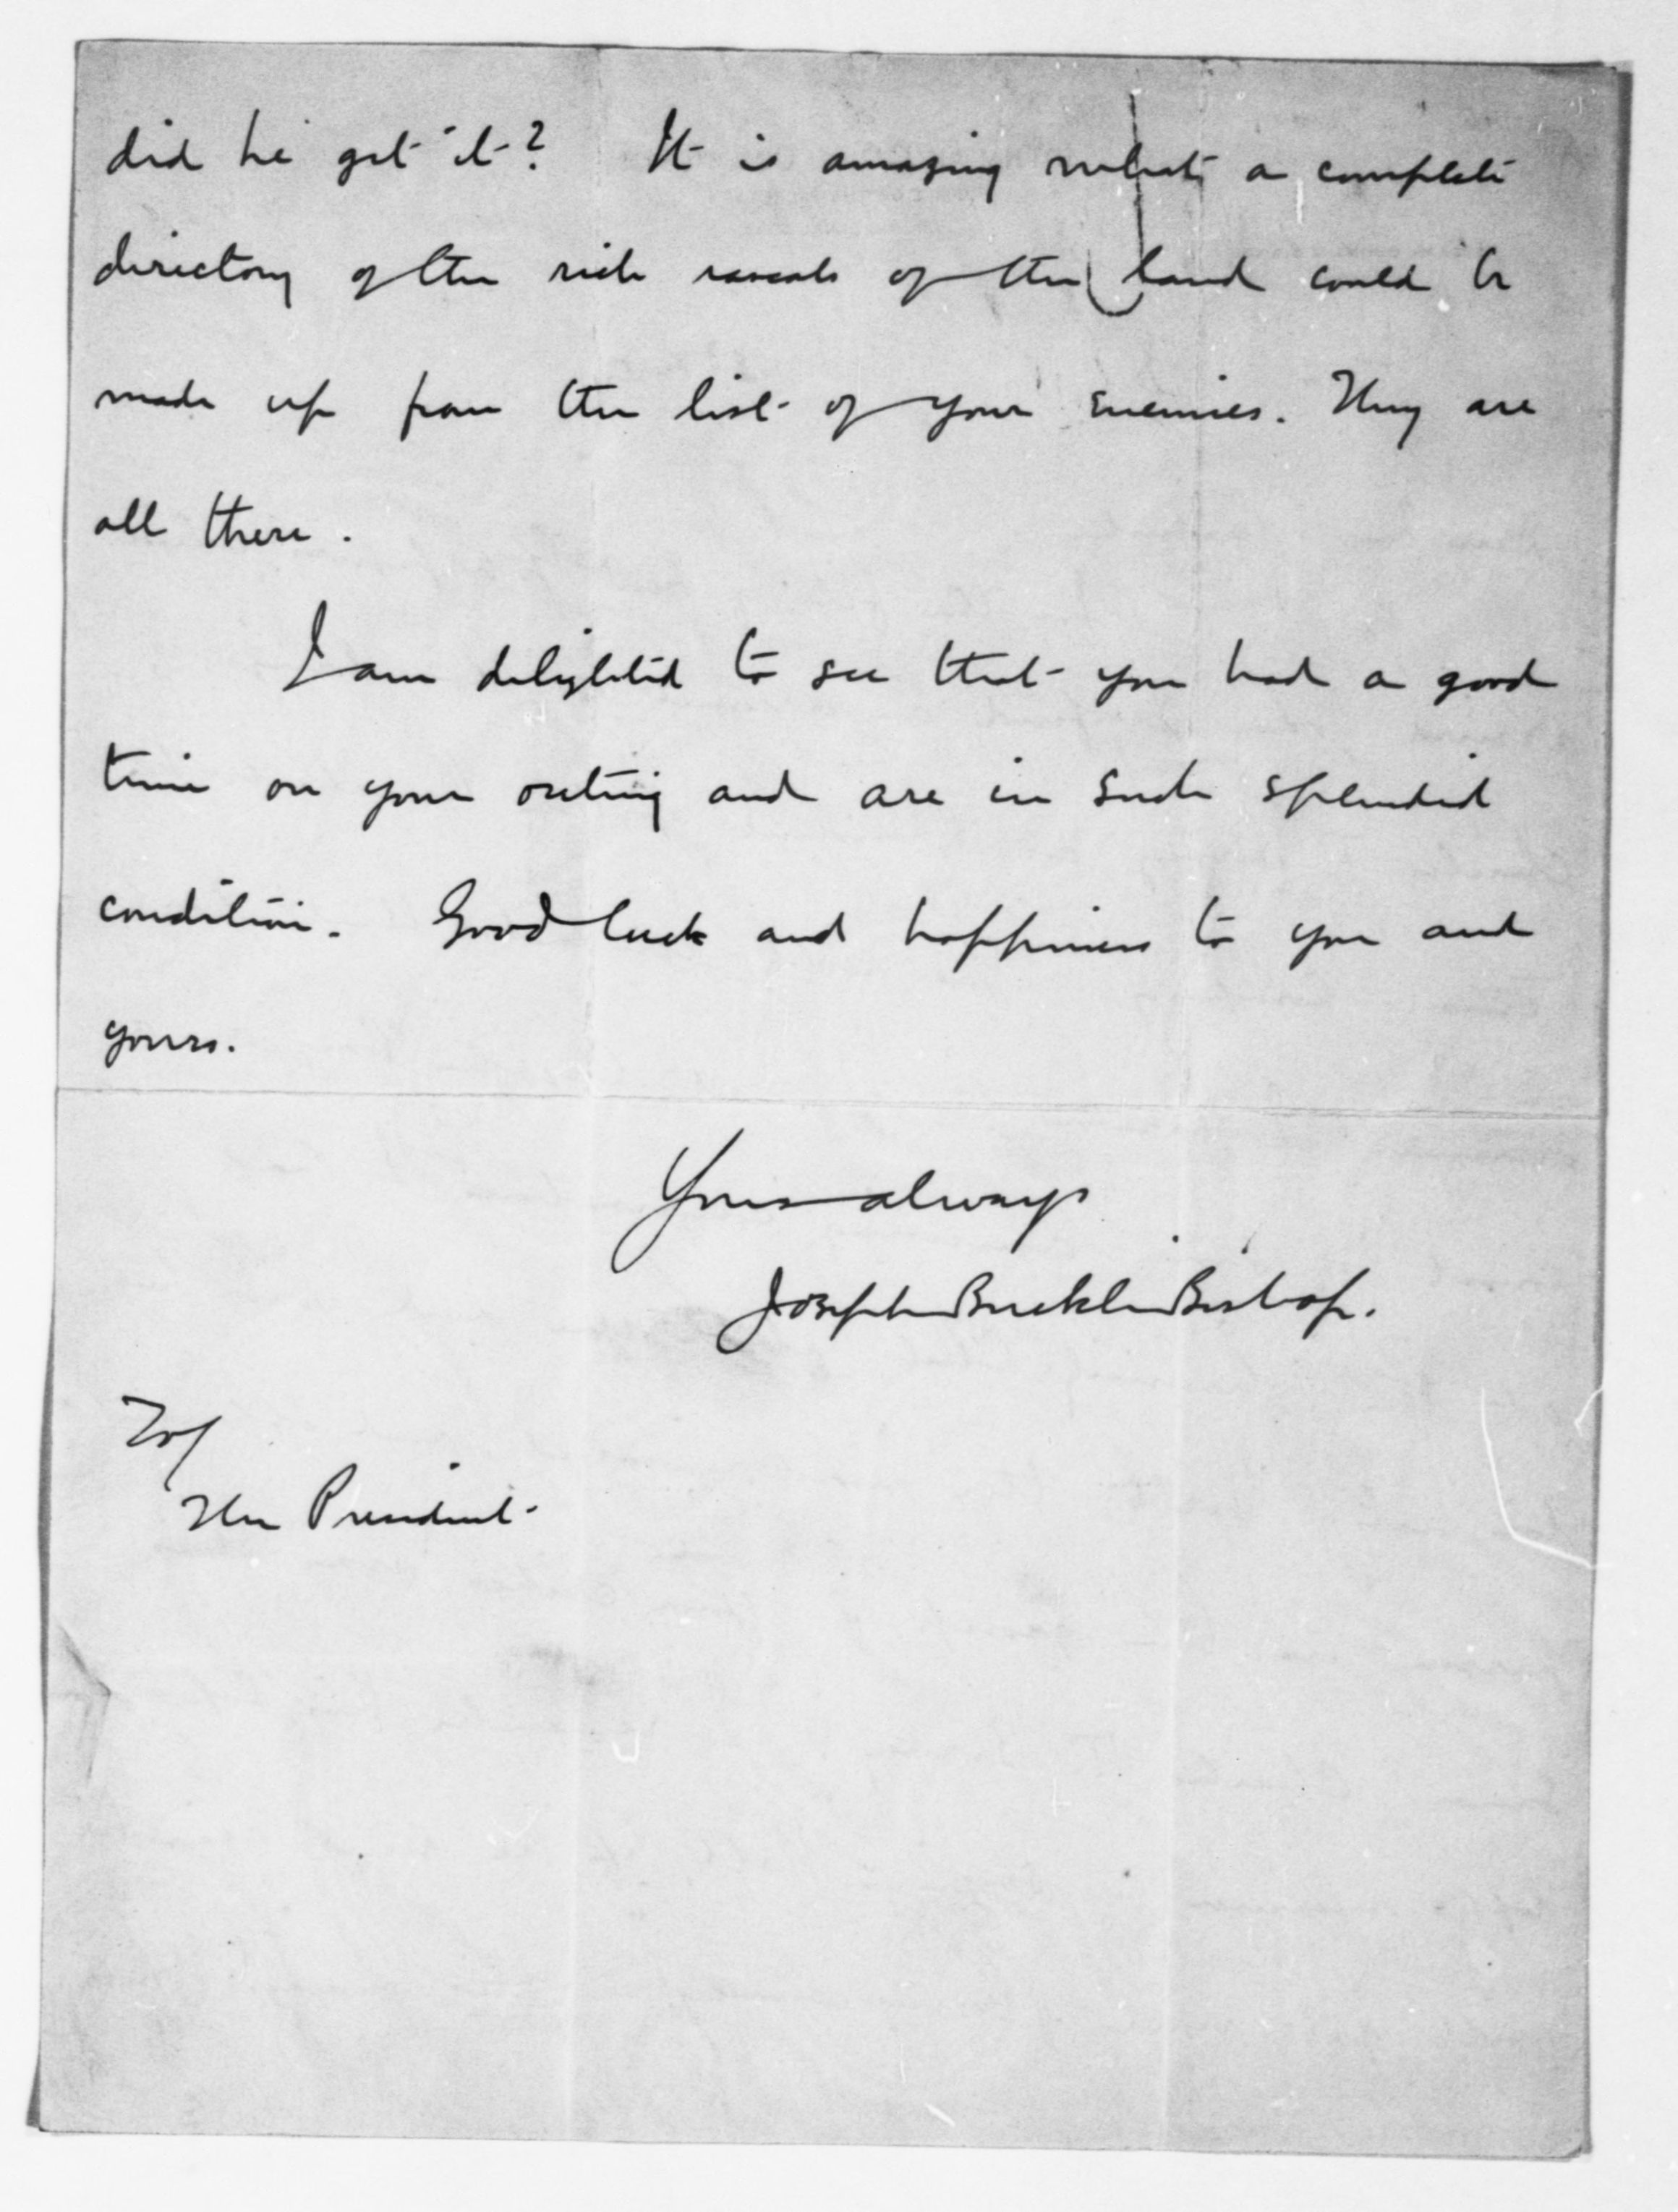 did he get it? It is amazing what a complete
directory of the rich rascals of the land could be
made up from the list of your enemies. They are
all there.
I am delighted to see that you had a good
time on your outing and are in such splendid
condition. Good luck and happiness to you and
yours.
Yours always
Joseph Bucklin Bishop.
To/
The President